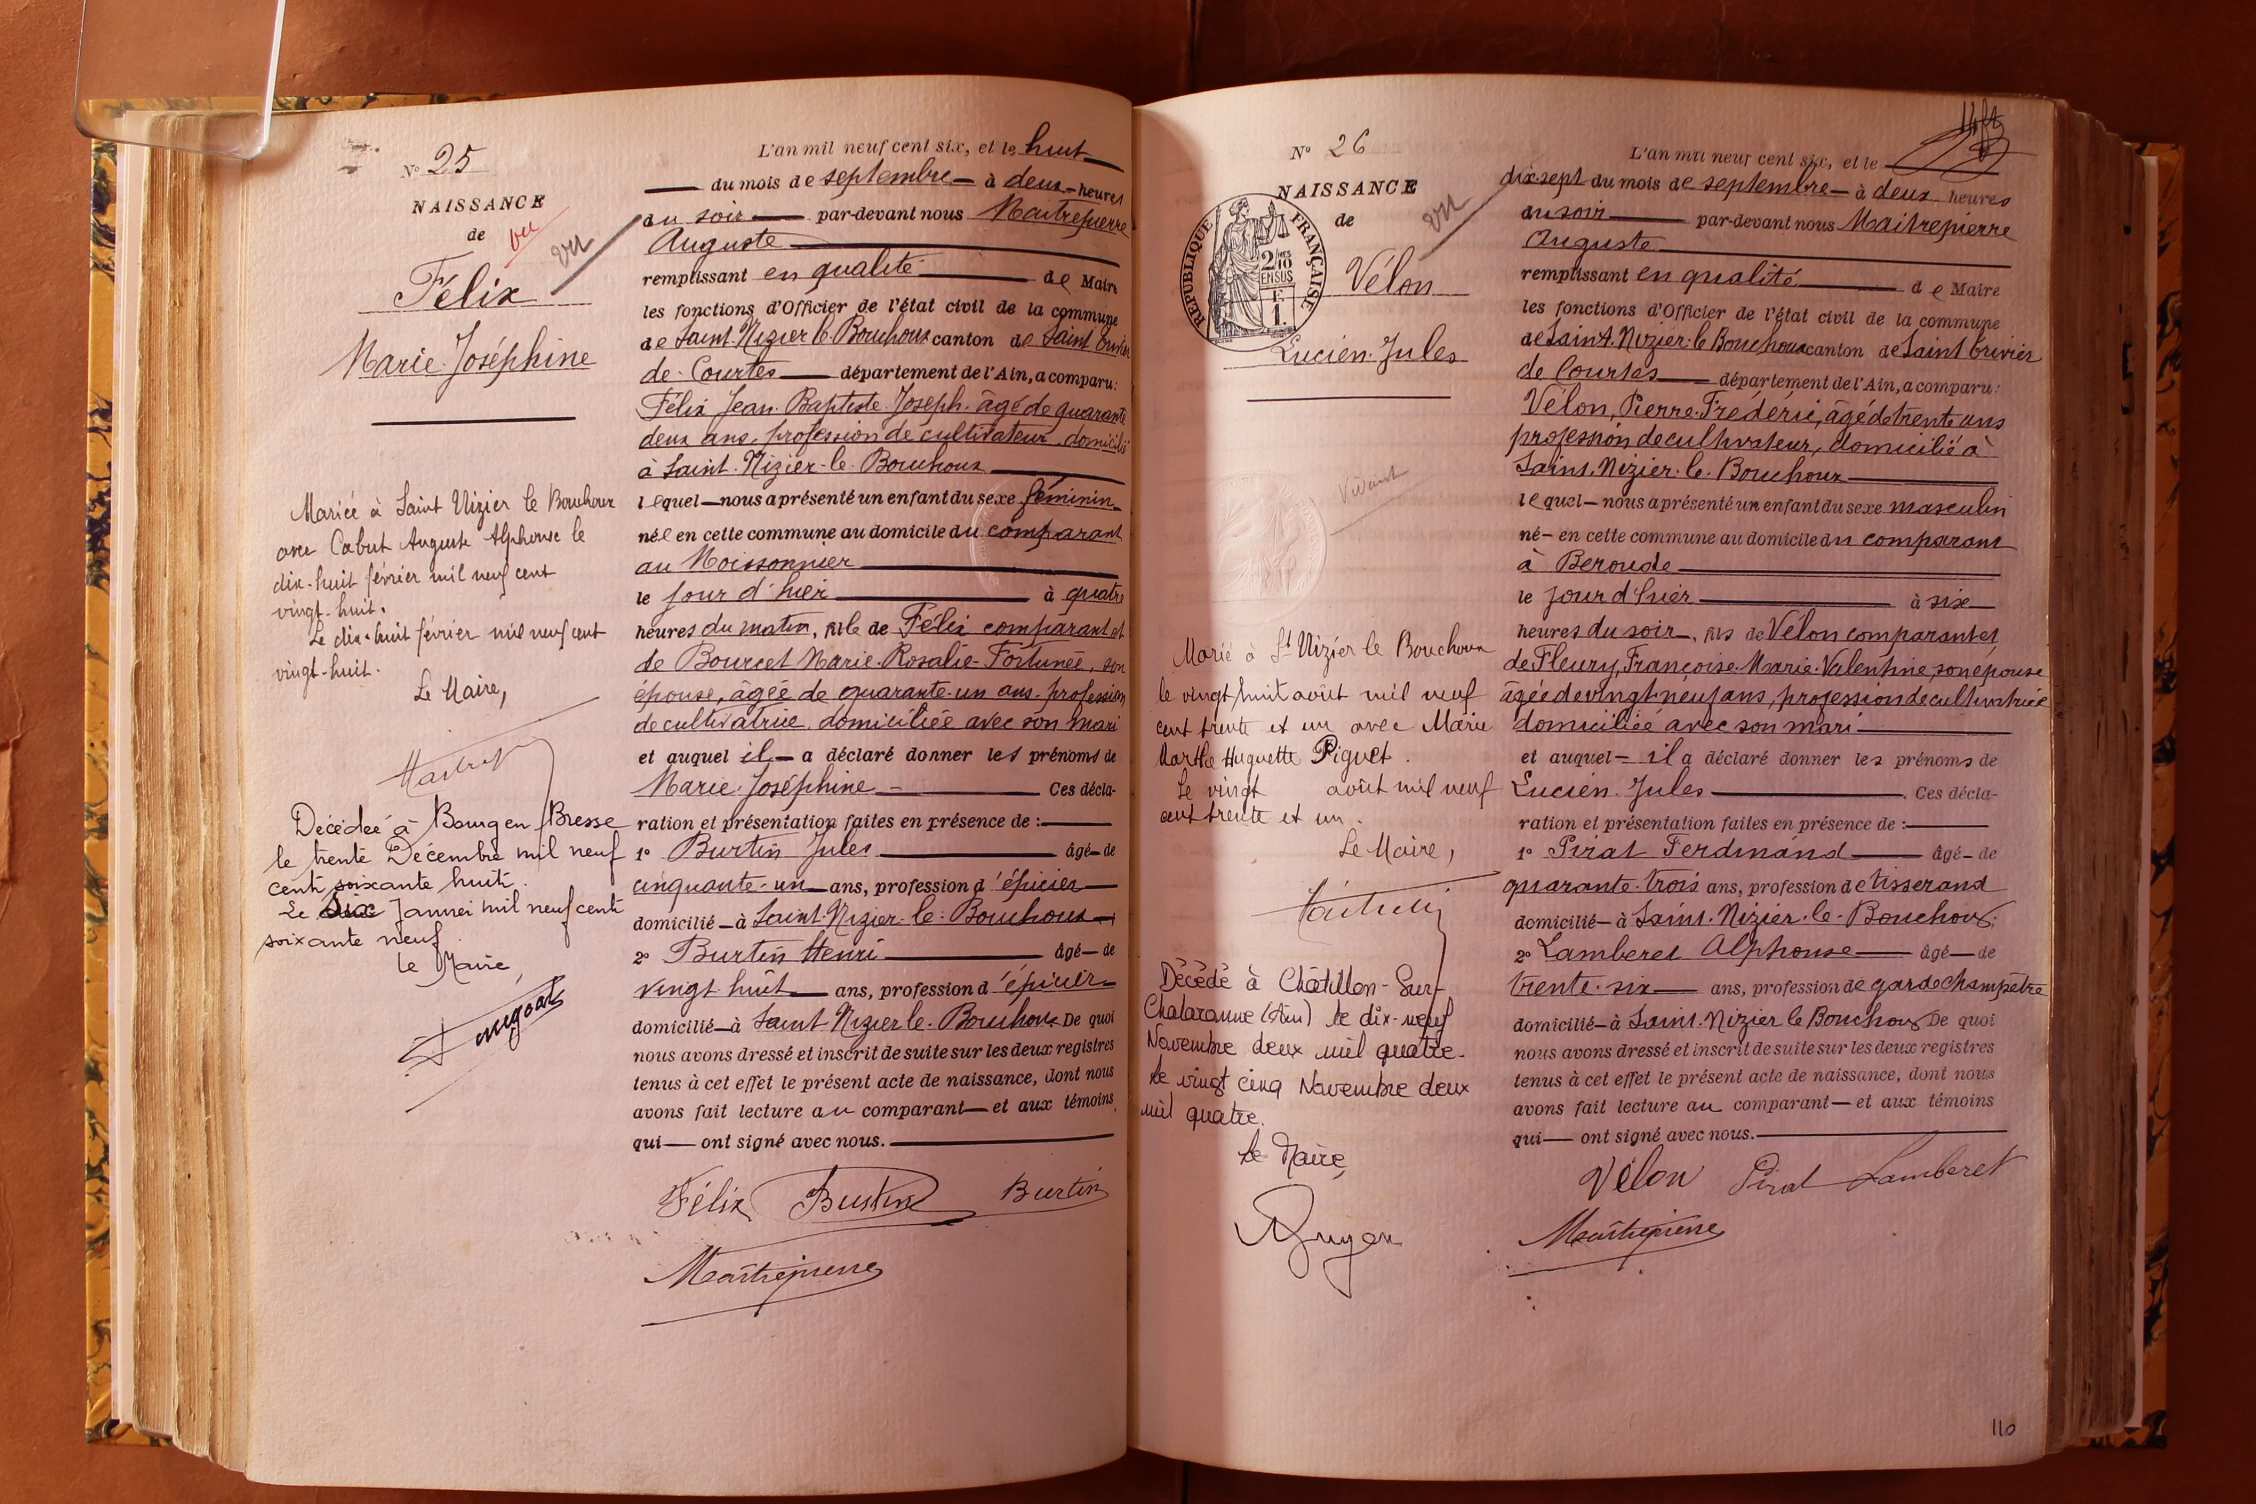 N° 25
NAISSANCE
de
vu
vu
Félix
Marie-Joséphine
Mariée à Saint Nizier le Bouchoux
avec Cabut Auguste Alphonse le
dix-huit février mil neuf cent
vingt-huit.
Le dix-huit février mil neuf cent
vingt-huit.
Le Maire,
Décédée à Bourg en Bresse
le trente Décembre mil neuf
cent soixante huit.
Le Six Janvier mil neuf cent
soixante neuf.
le Maire,
L'an mil neuf cent six, et le huit
du mois de septembre à deux heures
du soir par-devant nous Maitrepierre
Auguste
remplissant en qualité de Maire
les fonctions d'Officier de l'état civil de la commune
de Saint-Nizier-le-Bouchoux canton de Saint Trivier
de-Courtes département de l'Ain, a comparu:
Félix Jean-Baptiste-Joseph, âgé de quarante
deux ans, profession de cultivateur, domicilié
à Saint-Nizier-le-Bouchoux
lequel nous a présenté un enfant du sexe féminin
née en cette commune au domicile du comparant
au Moissonnier
le jour d'hier à quatre
heures du matin, fille de Félix comparant et
de Bourcet Marie-Rosalie-Fortunée, son
épouse, âgée de quarante-un ans, profession
de cultivatrice, domiciliée avec son mari
et auquel il a déclaré donner les prénoms de
Marie-Joséphine Ces décla-
ration et présentation faites en présence de :
1° Burtin Jules âgé de
cinquante-un ans, profession d'épicier
domicilié à Saint-Nizier-le-Bouchoux
2° Burtin Henri âgé de
vingt huit ans, profession d'épicier
domicilié à Saint-Nizier le-Bouchoux De quoi
nous avons dressé et inscrit de suite sur les deux registres
tenus à cet effet le présent acte de naissance, dont nous
avons fait lecture au comparant et aux témoins
qui ont signé avec nous.
Félix Burtin Burtin
Maitrepierre
N° 26
NAISSANCE
de
vu
RÉPUBLIQUE FRANÇAISE
2/10 EN SUS
Vélon
Lucien-Jules
Vivant
Marié à St Nizier le Bouchoux
le vingt huit août mil neuf
cent trente et un avec Marie
Marthe Huguette Piguet.
Le vingt août mil neuf
cent trente et un.
Le Maire,
Décédé à Châtillon-Sur-
Chalaronne (Ain) le dix-neuf
Novembre deux mil quatre.
Le vingt cinq Novembre deux
mil quatre.
Le Maire,
L'an mil neuf cent six, et le
dix-sept du mois de septembre à deux heures
du soir par-devant nous Maitrepierre
Auguste
remplissant en qualité de Maire
les fonctions d'Officier de l'état civil de la commune
de Saint-Nizier-le-Bouchoux canton de Saint Trivier
de Courtes département de l'Ain, a comparu:
Vélon, Pierre-Frédéric, âgé de trente ans
profession de cultivateur, domicilié à
Saint-Nizier-le-Bouchoux
lequel nous a présenté un enfant du sexe masculin
né en cette commune au domicile du comparant
à Beroude
le jour d'hier à six
heures du soir, fils de Vélon comparant et
de Fleury, Françoise-Marie-Valentine, son épouse
âgée de vingt-neuf ans, profession de cultivatrice
domiciliée avec son mari
et auquel il a déclaré donner les prénoms de
Lucien-Jules Ces décla-
ration et présentation faites en présence de :
1° Pirat Ferdinand âgé de
quarante-trois ans, profession de tisserand
domicilié à Saint-Nizier-le-Bouchoux
2° Lamberet Alphonse âgé de
trente-six ans, profession de garde champêtre
domicilié à Saint-Nizier le Bouchoux De quoi
nous avons dressé et inscrit de suite sur les deux registres
tenus à cet effet le présent acte de naissance, dont nous
avons fait lecture au comparant et aux témoins
qui ont signé avec nous.
Vélon Pirat Lamberet
Maitrepierre
110